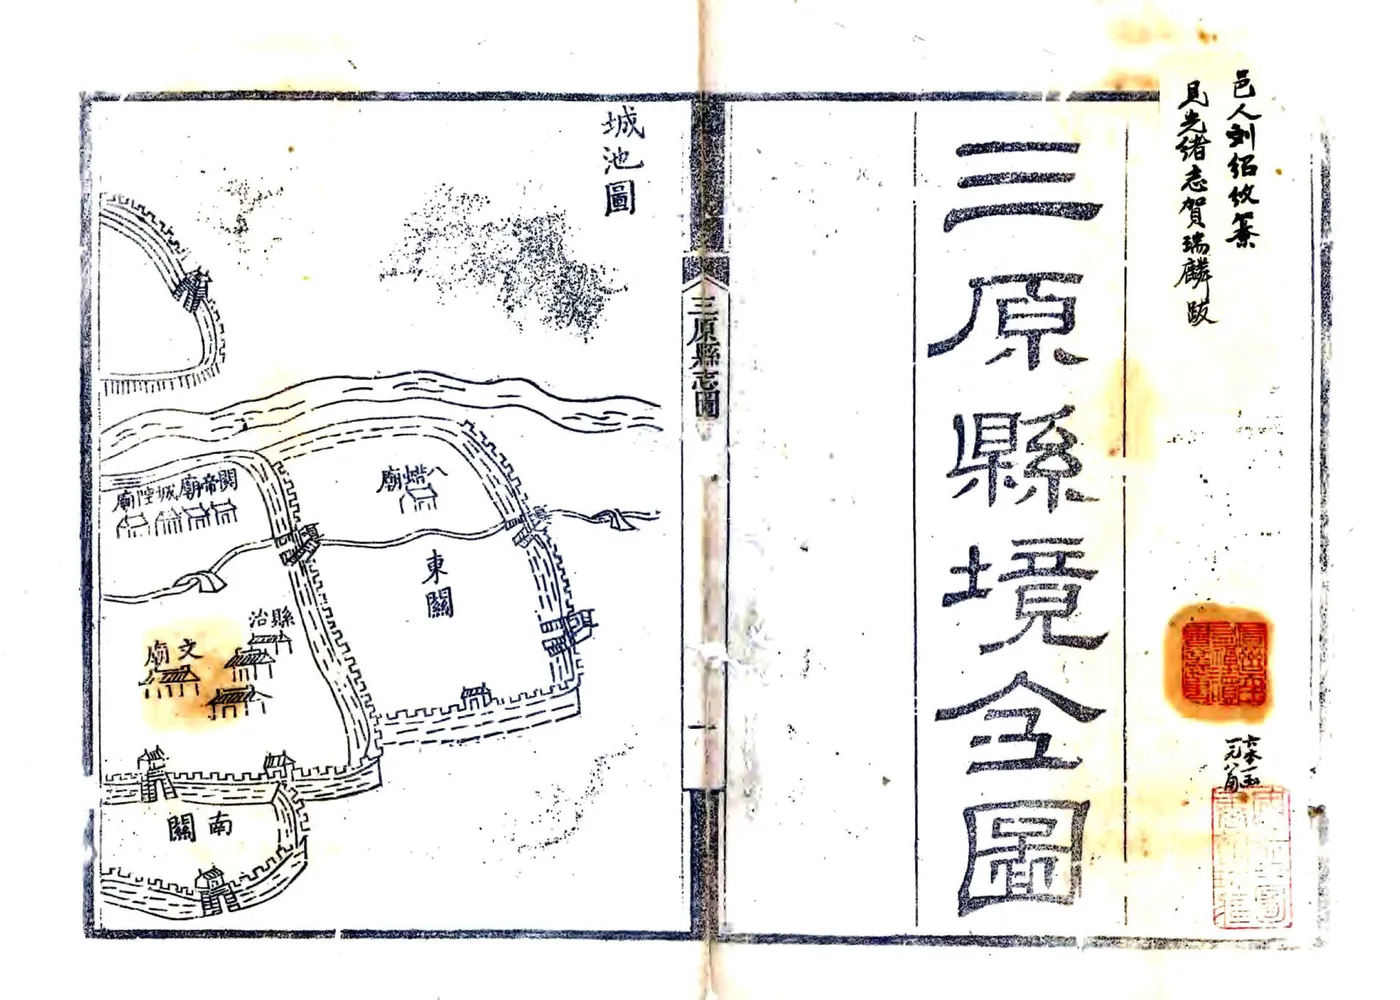 邑人劉紹攽纂
見光緒志賀瑞麟跋
三原縣境全圖
六本一函
一元八角
三原縣志圖
一
城池圖
八蜡廟
東關
關帝廟
城隍廟
縣治
文廟
南關